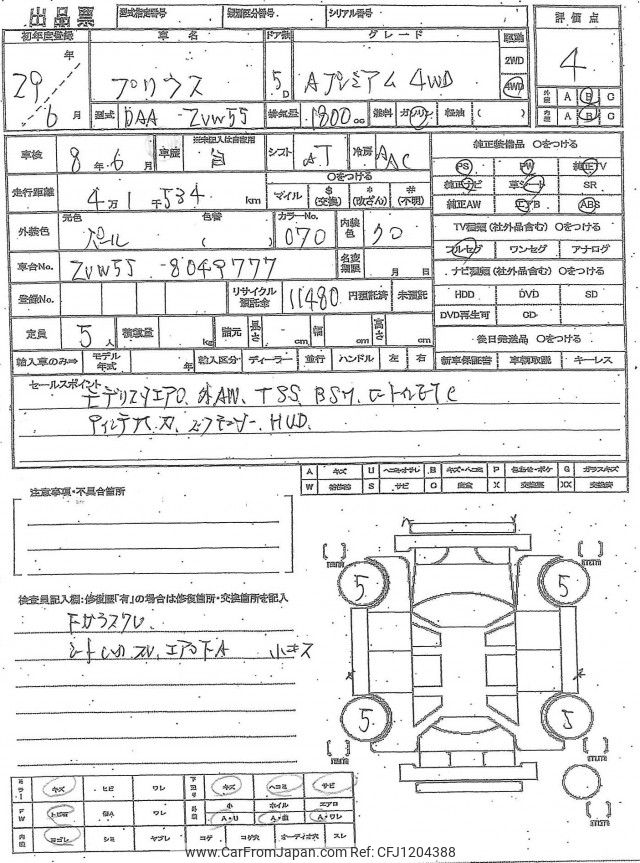 出品票 型式指定番号 類別区分番号 シリアル番号
初年度登録 車名 ドア数 グレード 駆動 評価点
29年 6月 プリウス 5D Aプレミアム 4WD 2WD 4WD 4
外装 A B C
内装 A B C
型式 DAA - ZVW55 排気量 1800cc 燃料 ガソリン 軽油 ( )
車検 8年6月 車歴 自 シフト AT 冷房 AAC
純正装備品 ○をつける
PS PW 純正TV
走行距離 4万1千534km ○をつける マイル $(交換) *(改ざん) #(不明)
純正ナビ 革シート SR
純正AW エアB ABS
外装色 元色 パール 色替 ( ) カラーNo. 070 内装色 クロ
TV種類(社外品含む) ○をつける
フルセグ ワンセグ アナログ
車台No. ZVW55 - 8049777 名変期限 月 日
ナビ種類(社外品含む) ○をつける
登録No. リサイクル預託金 11480 円預託済 未預託
HDD DVD SD
DVD再生可 CD
定員 5人 積載量 kg 諸元 長さ cm 幅 cm 高さ cm
後日発送品 ○をつける
輸入車のみ⇒ モデル年式 年 輸入区分 ディーラー 並行 ハンドル 左 右 新車保証書 車輌取説 キーレス
セールスポイント
モデリスタエアロ. 外AW. TSS. BSM.
HUD.
A キズ U B キズ・ヘコミ P G ガラスキズ
W S サビ C 腐食 X 交換要 XX 交換済
注意事項・不具合箇所
検査員記入欄:修復歴「有」の場合は修復箇所・交換箇所を記入
Fガラスワレ
小キズ
5 5
5 5
ミラー キズ ヒビ ワレ
キズ ヘコミ サビ
FW トビ石 ワレ
小 ホイル エアロ
A・U A・曲 A・ワレ
内装 ヨゴレ シミ ヤブレ コゲ コゲ穴 オーディオ穴 スレ
www.CarFromJapan.com Ref: CFJ1204388